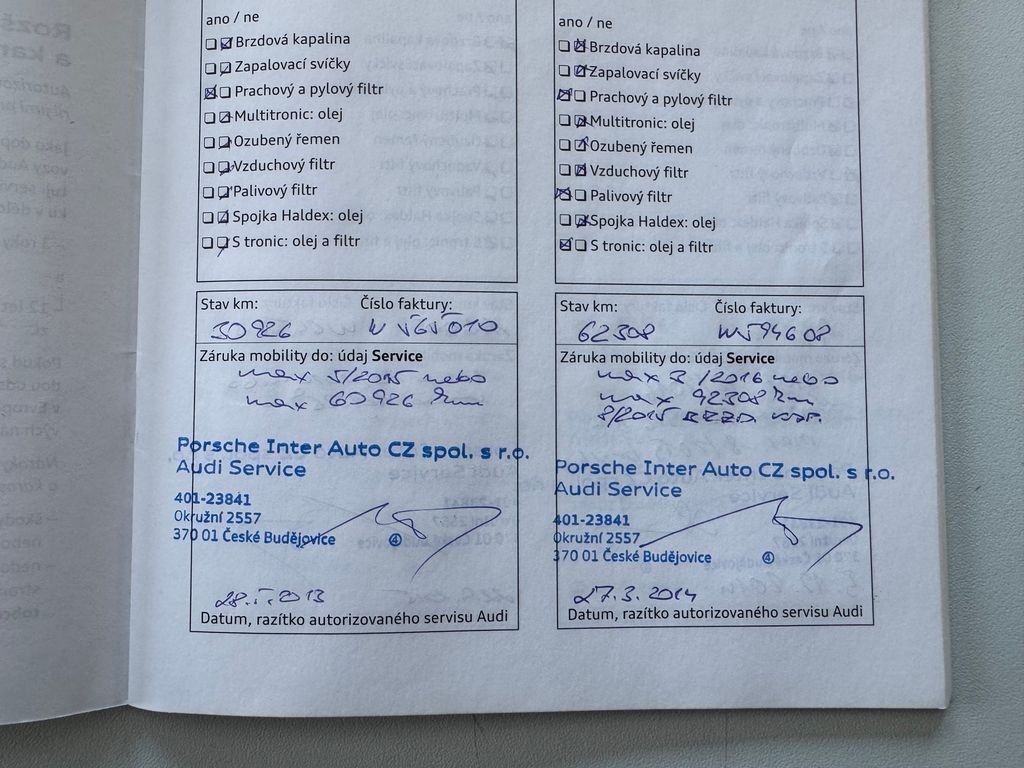 ano / ne
Brzdová kapalina
Zapalovací svíčky
Prachový a pylový filtr
Multitronic: olej
Ozubený řemen
Vzduchový filtr
Palivový filtr
Spojka Haldex: olej
S tronic: olej a filtr
Stav km: Číslo faktury:
30926
Záruka mobility do: údaj Service
max 5/2015 nebo
max 60926 km
Porsche Inter Auto CZ spol. s r.o.
Audi Service
401-23841
Okružní 2557
370 01 České Budějovice 4
2013
Datum, razítko autorizovaného servisu Audi
ano / ne
Brzdová kapalina
Zapalovací svíčky
Prachový a pylový filtr
Multitronic: olej
Ozubený řemen
Vzduchový filtr
Palivový filtr
Spojka Haldex: olej
S tronic: olej a filtr
Stav km: Číslo faktury:
62308 W594608
Záruka mobility do: údaj Service
max 3/2016 nebo
max 92308 km
8/2015
Porsche Inter Auto CZ spol. s r.o.
Audi Service
401-23841
Okružní 2557
370 01 České Budějovice 4
27.3.2014
Datum, razítko autorizovaného servisu Audi